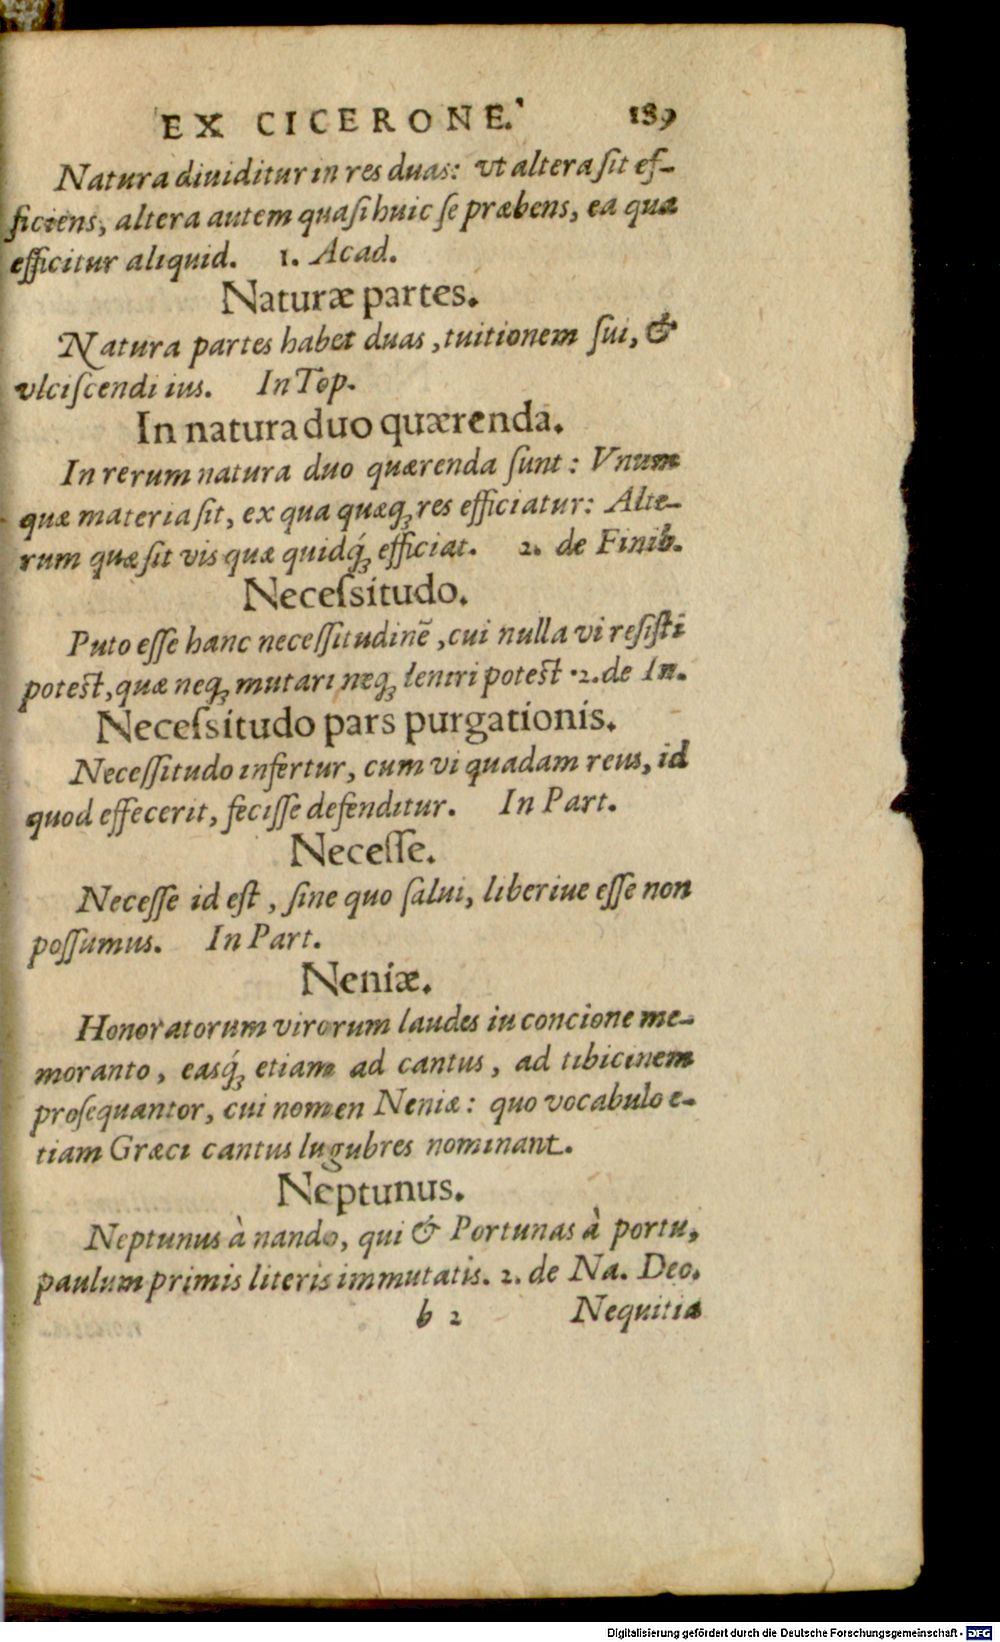 EX CICERONE. 189
Natura diuiditur in res duas: vt altera ſit ef-
ficiens, altera autem quaſi huic ſe præbens, ea qua
efficitur aliquid. 1. Acad.
Naturæ partes.
Natura partes habet duas, tuitionem ſui, &
vlciſcendi ius. In Top.
In natura duo quærenda.
In rerum natura duo quærenda ſunt: Vnum
quæ materia ſit, ex qua quæq́ꝫ res efficiatur: Alte-
rum quæ ſit vis quæ quidq́ꝫ efficiat. 2. de Finib.
Neceſsitudo.
Puto eſſe hanc neceſſitudinē, cui nulla vi reſiſti
poteſt, quæ neqꝫ mutari neqꝫ leniri poteſt. 2. de In.
Neceſsitudo pars purgationis.
Neceſſitudo infertur, cum vi quadam reus, id
quod effecerit, feciſſe defenditur. In Part.
Neceſſe.
Neceſſe id eſt, ſine quo ſalui, liberiue eſſe non
poſſumus. In Part.
Neniæ.
Honoratorum virorum laudes iu concione me-
moranto, easq́ꝫ etiam ad cantus, ad tibicinem
proſequantor, cui nomen Neniæ: quo vocabulo e-
tiam Græci cantus lugubres nominant.
Neptunus.
Neptunus à nando, qui & Portunas à portu,
paulum primis literis immutatis. 2. de Na. Deo.
b 2 Nequitia
Digitalisierung gefördert durch die Deutsche Forschungsgemeinschaft - DFG